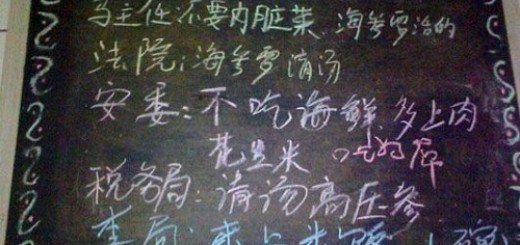 马主任不要内脏菜、海参要活的
法院:海参要清汤
安委:不吃海鲜多上肉
花生米 吃的席
税务局:清汤高压参
李局: